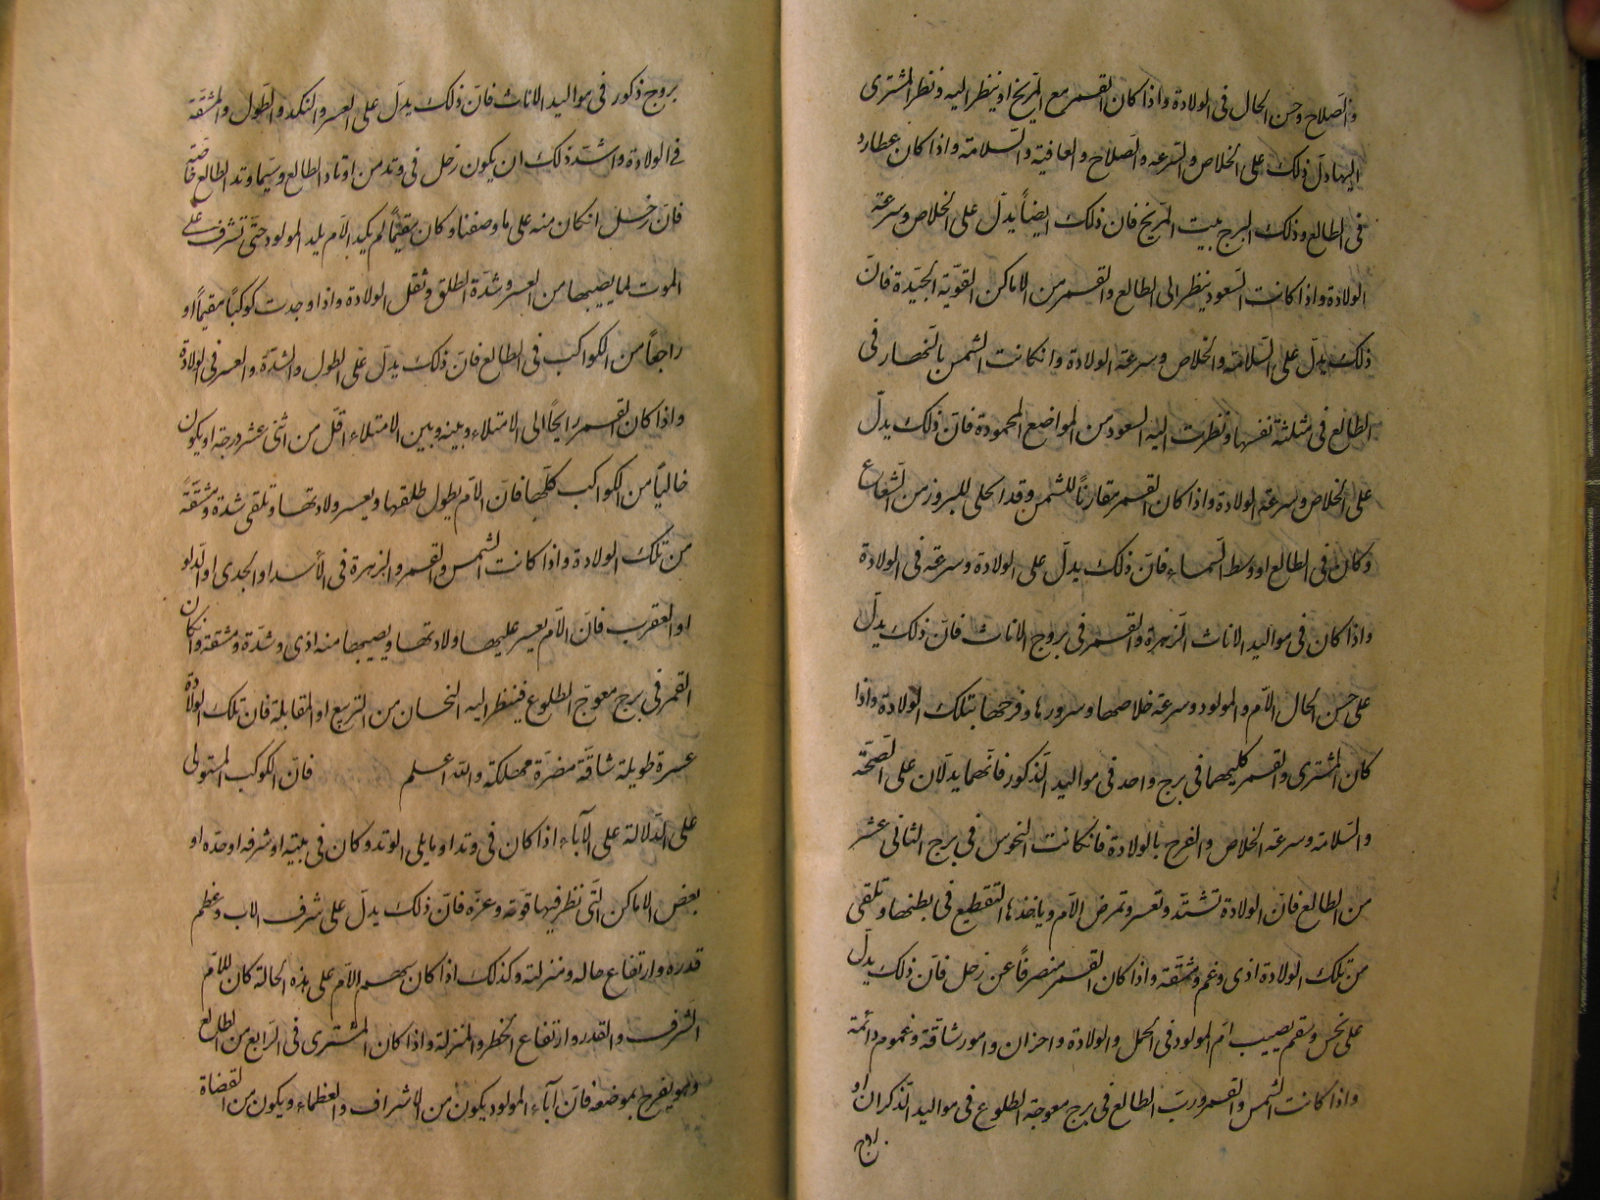 والصلاح وحسن الحال فى الولادة واذا كان القمر مع المريخ او ينظر اليه ونظر المشترى
اليها دلّ ذلك على الخلاص والسرعة والصلاح والعافية والسلامة واذا كان عطارد
فى الطالع وذلك البرج بيت المريخ فان ذلك ايضاً يدلّ على الخلاص وسرعة
الولادة واذا كانت السعود ينظر الى الطالع والقمر من الاماكن القويّة الجيّدة فانّ
ذلك يدلّ على السّلامة والخلاص وسرعة الولادة وانكانت الشمس بالنهار فى
الطالع فى مثلثة نفسها ونظرت اليه السعود من المواضع المحمودة فانّ ذلك يدلّ
على الخلاص وسرعة الولادة واذا كان القمر مقارناً للشمس وقد انجلى للبروز من الشعاع
وكان فى الطالع او وسط السّماء فانّ ذلك يدلّ على الولادة وسرعة فى الولادة
واذا كان فى مواليد الاناث الزهرة والقمر فى بروج الاناث فانّ ذلك يدلّ
على حسن الحال الامّ والمولود وسرعة خلاصها وسرورها وفرحها بتلك الولادة واذا
كان المشترى والقمر كليهما فى برج واحد فى مواليد الذكور فانّهما يدلان على الصّحّة
والسّلامة وسرعة الخلاص والفرح بالولادة فانكانت النحوس فى برج الثانى عشر
من الطالع فانّ الولادة تشتدّ وتعسر وتمرض الامّ وياخذها التقطيع فى بطنها وتلقى
من تلك الولادة اذى وغم ومشقّة واذا كان القمر منصرفاً عن زحل فانّ ذلك يدلّ
على نحس وسقم يصيب امّ المولود فى الحمل والولادة واحزان وامور شاقّة وغموم دائمة
واذا كانت الشمس والقمر وربّ الطالع فى برج معوجة الطلوع فى مواليد الذكران او
بروج
بروج ذكور فى مواليد الاناث فانّ ذلك يدلّ على العسر والنكد والطّول والمشقّة
فى الولادة واشدّ ذلك ان يكون زحل فى وتد من اوتاد الطالع وسيّما وتد الطالع خاصّة
فانّ زحل انكان منه على ما وصفنا وكان مقيماً لم يكد الامّ يلد المولود حتى تشرف على
الموت لما يصيبها من العسر وشدّة الطلق وثقل الولادة واذا وجدت كوكباً مقيماً او
راجعاً من الكواكب فى الطالع فانّ ذلك يدلّ على الطول والشدّة والعسر فى الولادة
واذا كان القمر رايحاً الى الامتلاء وبينه وبين الامتلاء اقلّ من اثنى عشر درجة او يكون
خالياً من الكواكب كلّها فانّ الامّ يطول طلقها ويعسر ولادتها وتلقى شدة ومشقّة
من تلك الولادة واذا كانت الشمس والقمر والزهرة فى الأسد او الجدى او الدّلو
او العقرب فانّ الامّ يعسر عليها ولادتها ويصيبها منه اذى وشدّة ومشقة وانكان
القمر فى برج معوجّ الطلوع فينظر اليه النحسان من التربيع او المقابلة فان تلك الولادة
عسرة طويلة شاقّة مضرّة مهلكة والله اعلم فانّ الكوكب المستولى
على الدّلالة على الآباء اذا كان فى وتد او ما يلى الوتد وكان فى بيته او شرفه او حدّه او
بعض الاماكن الّتى نظر فيها قوّة وعزّه فانّ ذلك يدلّ على شرف الاب وعظم
قدره وارتفاع حاله ومنزلته وكذلك اذا كان سهم الامّ على هذه الحالة كان للامّ
الشرف والقدر وارتفاع الخطر والمنزلة واذا كان المشترى فى الرابع من الطالع
وهو يفرح بموضعه فانّ آباء المولود يكون من الاشراف والعظماء ويكون من القضاة